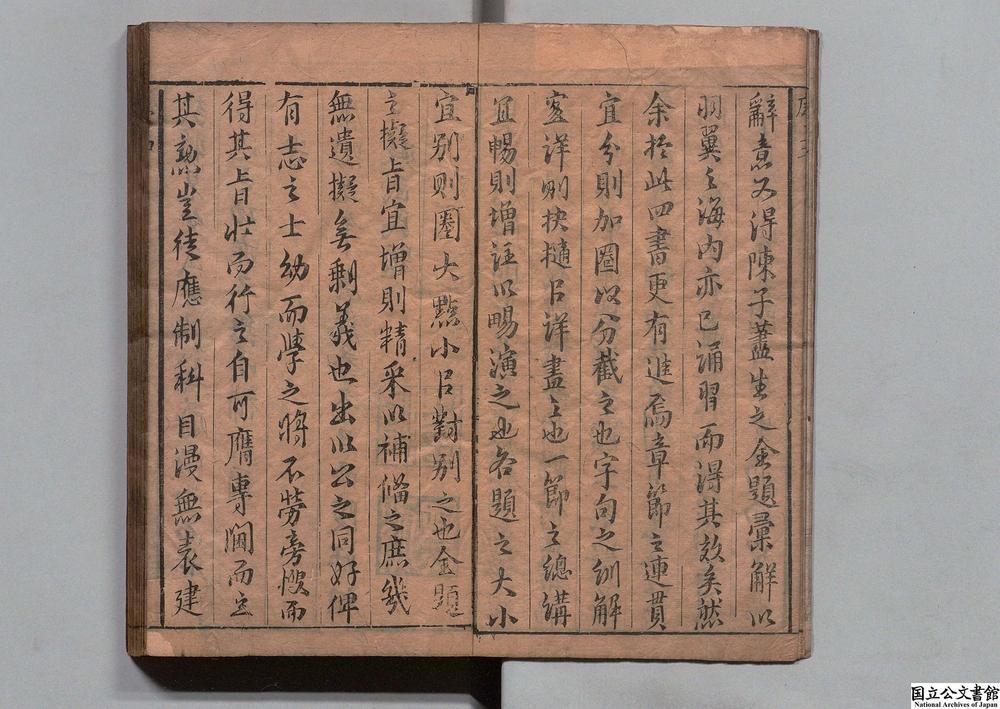 辭意又得陳子藎生之金題彙解以
羽翼之海內亦已誦習而得其效矣然
余於此四書更有進焉章節之連貫
宜分則加圈以分截之也字句之訓解
宜詳則抉擿以詳盡之也一節之總講
宜暢則增註以暢演之也各題之大小
宜別則圈大點小以對別之也金題
之擬旨宜增則精采以補備之庶幾
無遺擬無剩義也出以公之同好俾
有志之士幼而學之將不勞旁搜而
得其旨壯而行之自可膺專閫而
其勲豈徒應制科目漫無表建
国立公文書館
National Archives of Japan